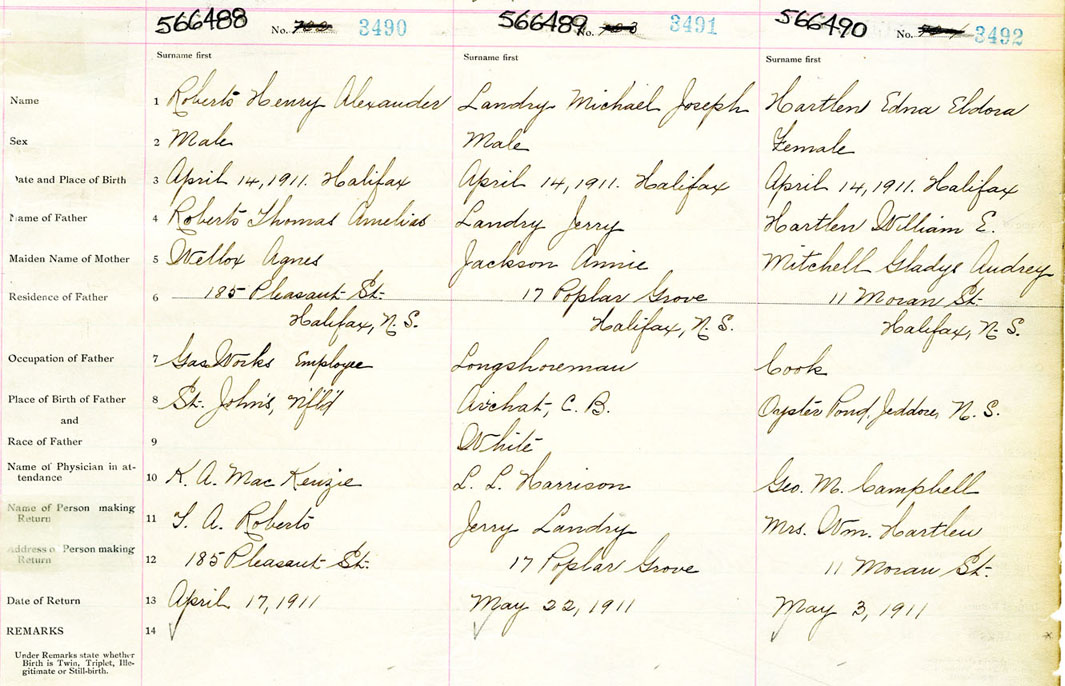 566488 No. 3490 566489 No. 703 3491 566490 No. 3492
Surname first Surname first Surname first
Name 1 Roberts Henry Alexander Landry Michael Joseph Hartlen Edna Eldora
Sex 2 Male Male Female
Date and Place of Birth 3 April 14, 1911. Halifax April 14, 1911. Halifax April 14, 1911. Halifax
Name of Father 4 Roberts Thomas Amelias Landry Jerry Hartlen William E.
Maiden Name of Mother 5 Wellox Agnes Jackson Annie Mitchell Gladys Audrey
Residence of Father 6 185 Pleasant St. 17 Poplar Grove 11 Moran St.
Halifax, N.S. Halifax, N.S. Halifax, N.S.
Occupation of Father 7 Gas Works Employee Longshoreman Cook
Place of Birth of Father 8 St. John's, Nfl'd Arichat, C.B. Oyster Pond, Jeddore, N.S.
and
Race of Father 9 White
Name of Physician in at-
tendance 10 K. A. MacKenzie L. L. Harrison Geo. M. Campbell
Name of Person making
Return 11 T. A. Roberts Jerry Landry Mrs. Wm. Hartlen
Address of Person making
Return 12 185 Pleasant St. 17 Poplar Grove 11 Moran St.
Date of Return 13 April 17, 1911 May 22, 1911 May 3, 1911
REMARKS 14 √ √ √
Under Remarks state whether
Birth is Twin, Triplet, Ille-
gitimate or Still-birth.